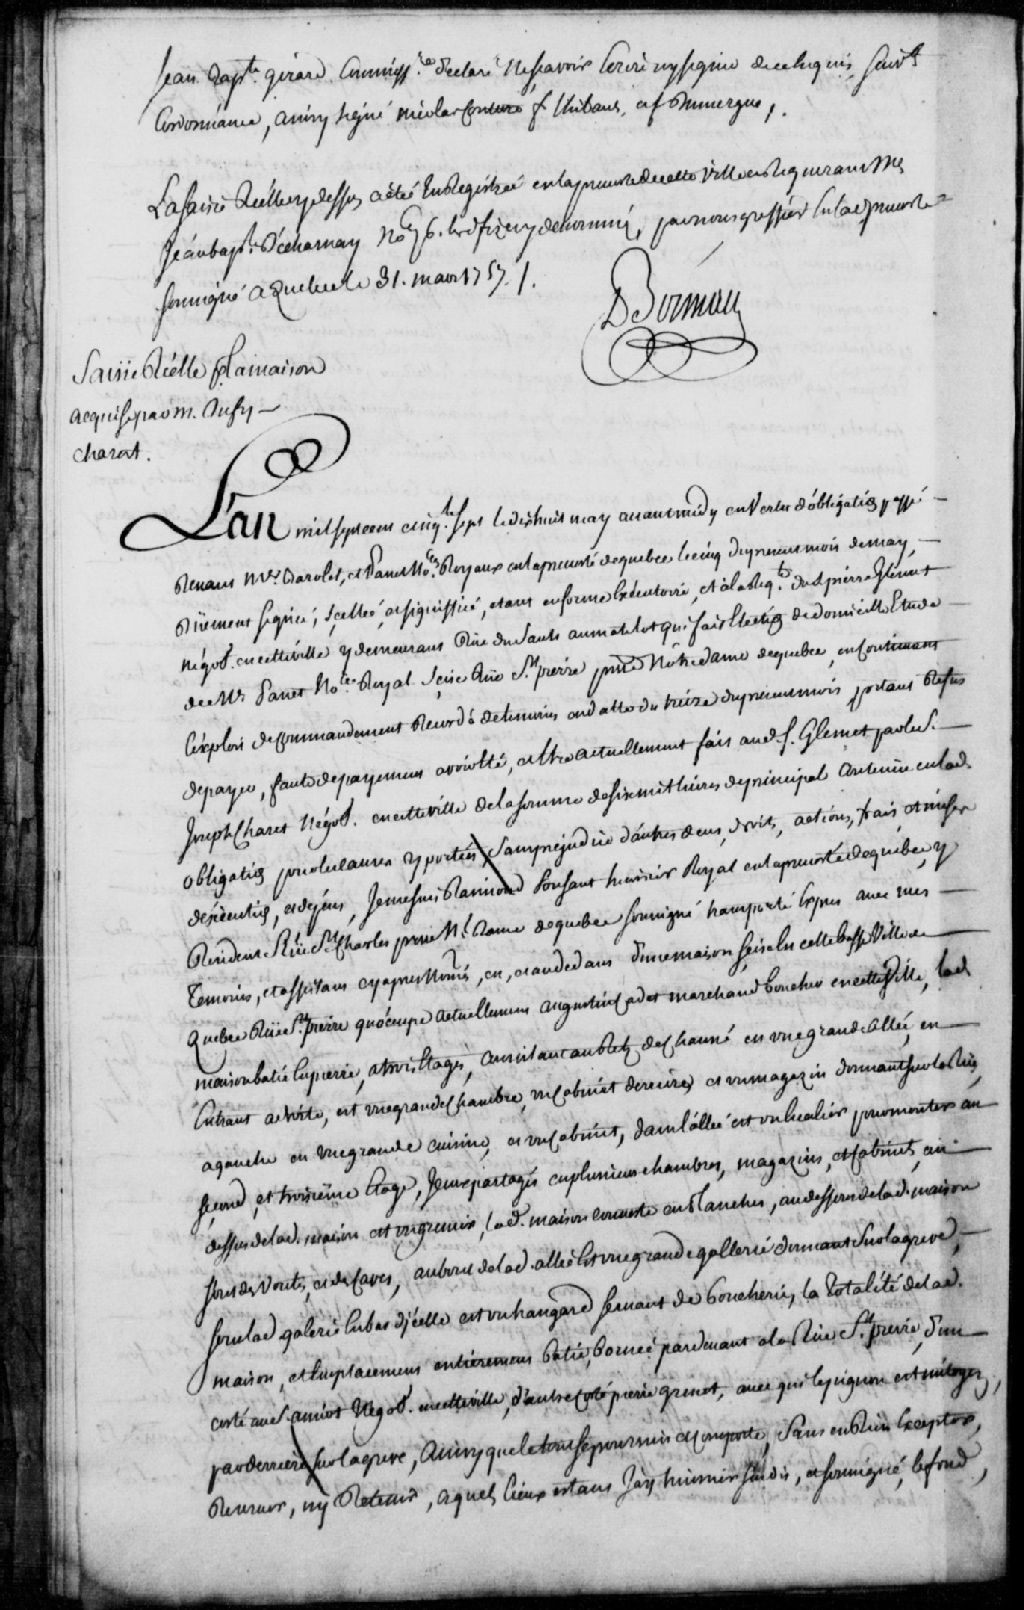 Jean Bapt.te girard Commiss.re declaré ne scavoir Ecrire ny signer de ce Enquis, suiv.t
Lordonnance, ainsy signé nicolas f thibaus,
La saisie Réelle cy dessus a été Enregistrée en la prevosté de cette ville en Requerant M.e
Jean bapt. Decharnay No.re cy denommé, par nous greffier en lad. prevosté
soussigné a Quebec le 31. mars 1757. /.
D Boisman
Saisie Réelle la maison
acquise par m. Jusy
charet.
L'an mil sept cens cinq.te sept le dixhuit may avant midy en Vertu d'obligation passé
devant M.es Barolet, et Panet No.res Royaux en la prevosté de quebec le cinq du present mois de may,
duement signée, scellée, et signiffiée, etant en forme Exécutoire, et a la Req.te du S. pierre Glemet
négot. en cette ville y demeurant Rue du Sault au matelot qui fait Election de domicille Etude
de M.e Panet No.re Royal sçise Rüe S.t pierre p.sse Nôtre dame de quebec, en continuant
l'exploit de commandement Recordé de temoins en datte du treize du present mois portant Refus
de payer, faute de payement avoir été, et Etre actuellement fait aud. s. Glemet par le S.
Joseph Charet Négot. en cette ville de la somme de six mil livres de principal Contenüe en lad.
obligation pour les causes y portées, sans prejudice d'autres deus, droits, actions, frais et mises
d'exécution, et depens, Je me suis Raimond Ponsant huissier Royal en la prevosté de quebec, y
Residant Rüe S.t Charles p.sse N.e Dame de quebec soussigné transporté Exprès avec mes
Temoins, et assistans cy apres Nommés, en, et au dedans d'une maison sçise En cette basse Ville de
Quebec Rüe S.t pierre qu'occupe actuellement augustin Cadet marchand boucher en cette Ville, lad.
maison batie En pierre, a trois Etages, consistant au Retz de Chaussé en une grande allée, en
Entrant a droite, est une grande Chambre, un Cabinet derriere, et un magazin donnant sur la Rüe,
a gauche en une grande cuisine, et un Cabinet, dans l'allée est un Escalier pour monter au
second, et troisiéme Etage, Iceux partagés en plusieurs chambres, magazins, et Cabinets, au
dessus de lad. maison est un grenier, lad. maison couverte en Planches, au dessous de lad. maison
sont des Voutes, et des Caves, au bout de lad. allée Est une grande gallerie donnant Sur la greve,
sous lad. galerie En bas d'jcelle est un hangard servant de boucherie, la Totalité de lad.
maison, et Emplacement entierement batie, bornée par devant a la Rüe S.t pierre, d'un
costé au S. amiot Négot. en cette ville, d'autre Costé pierre grenet, avec qui le pignon est mitoyen,
par derriere sur la greve, Ainsy que le tout se poursuit et comporte, Sans en Rien Excepter,
Reserver, ny Retenir, auquel lieux estant Jay huissier susdit, et soussigné, le fond,